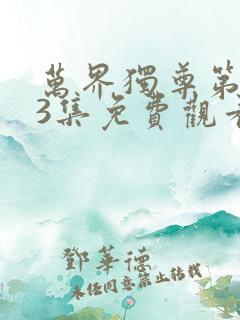 萬界獨尊第
3集免費觀看
鄧華德
未經同意禁止轉載